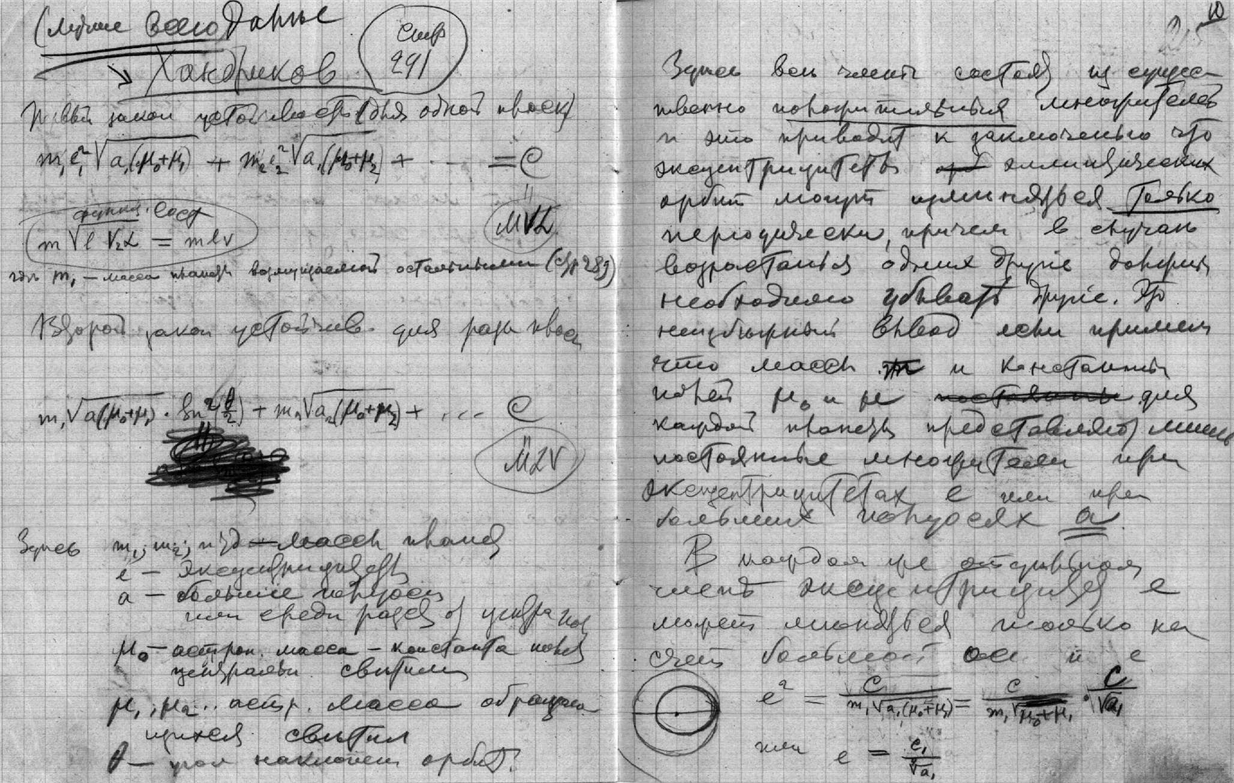 Лучше всего Данные
Хандриков
Стр
291
Первый закон устойчивости (для одной плоск)
m₁e₁²√a₁(μ₀+μ₁) + m₂e₂²√a₁(μ₀+μ₂) + ··· = C
MVL
m√l V₂L = mlv
где m₁ – масса планеты возмущаемой остальными (стр 289)
Второй закон устойчив. для разн плоск
m₁√a(μ₀+μ₁) · Sin²(θ/2) + m₂√a₂(μ₀+μ₂) + ··· C
MLV
Здесь m₁; m₂; – массы планет
e – эксцентрицитеты
a – большие полуоси
или средн
μ₀ – астрон. масса – константа поля
центральн светила
μ₁, μ₂.. астр. масса обращаю
щихся светил
θ – угол наклонен орбит?
10
25
Здесь все члены состоят из сущес
твенно положительных множителей
и это приводит к заключенью что
эксцентрицитеты эллиптических
орбит могут изменяться только
периодически, причем в случаях
возрастанья одних другие должны
необходимо убывать другие. Это
неизбежный вывод если примем
что массы m и константы
полей μ₀ и μ постоянны для
каждой планеты представляют лишь
постоянные множители при
эксцентрицитетах e или при
больших полуосях a
В каждом же отдельном
члене эксцентрицитет e
может меняться только на
счет большой оси и e
e² = C/m₁√a₁(μ₀+μ₁) = C/m₁√μ₀+μ₁ · C/√a₁
или e = c₁/∜a₁